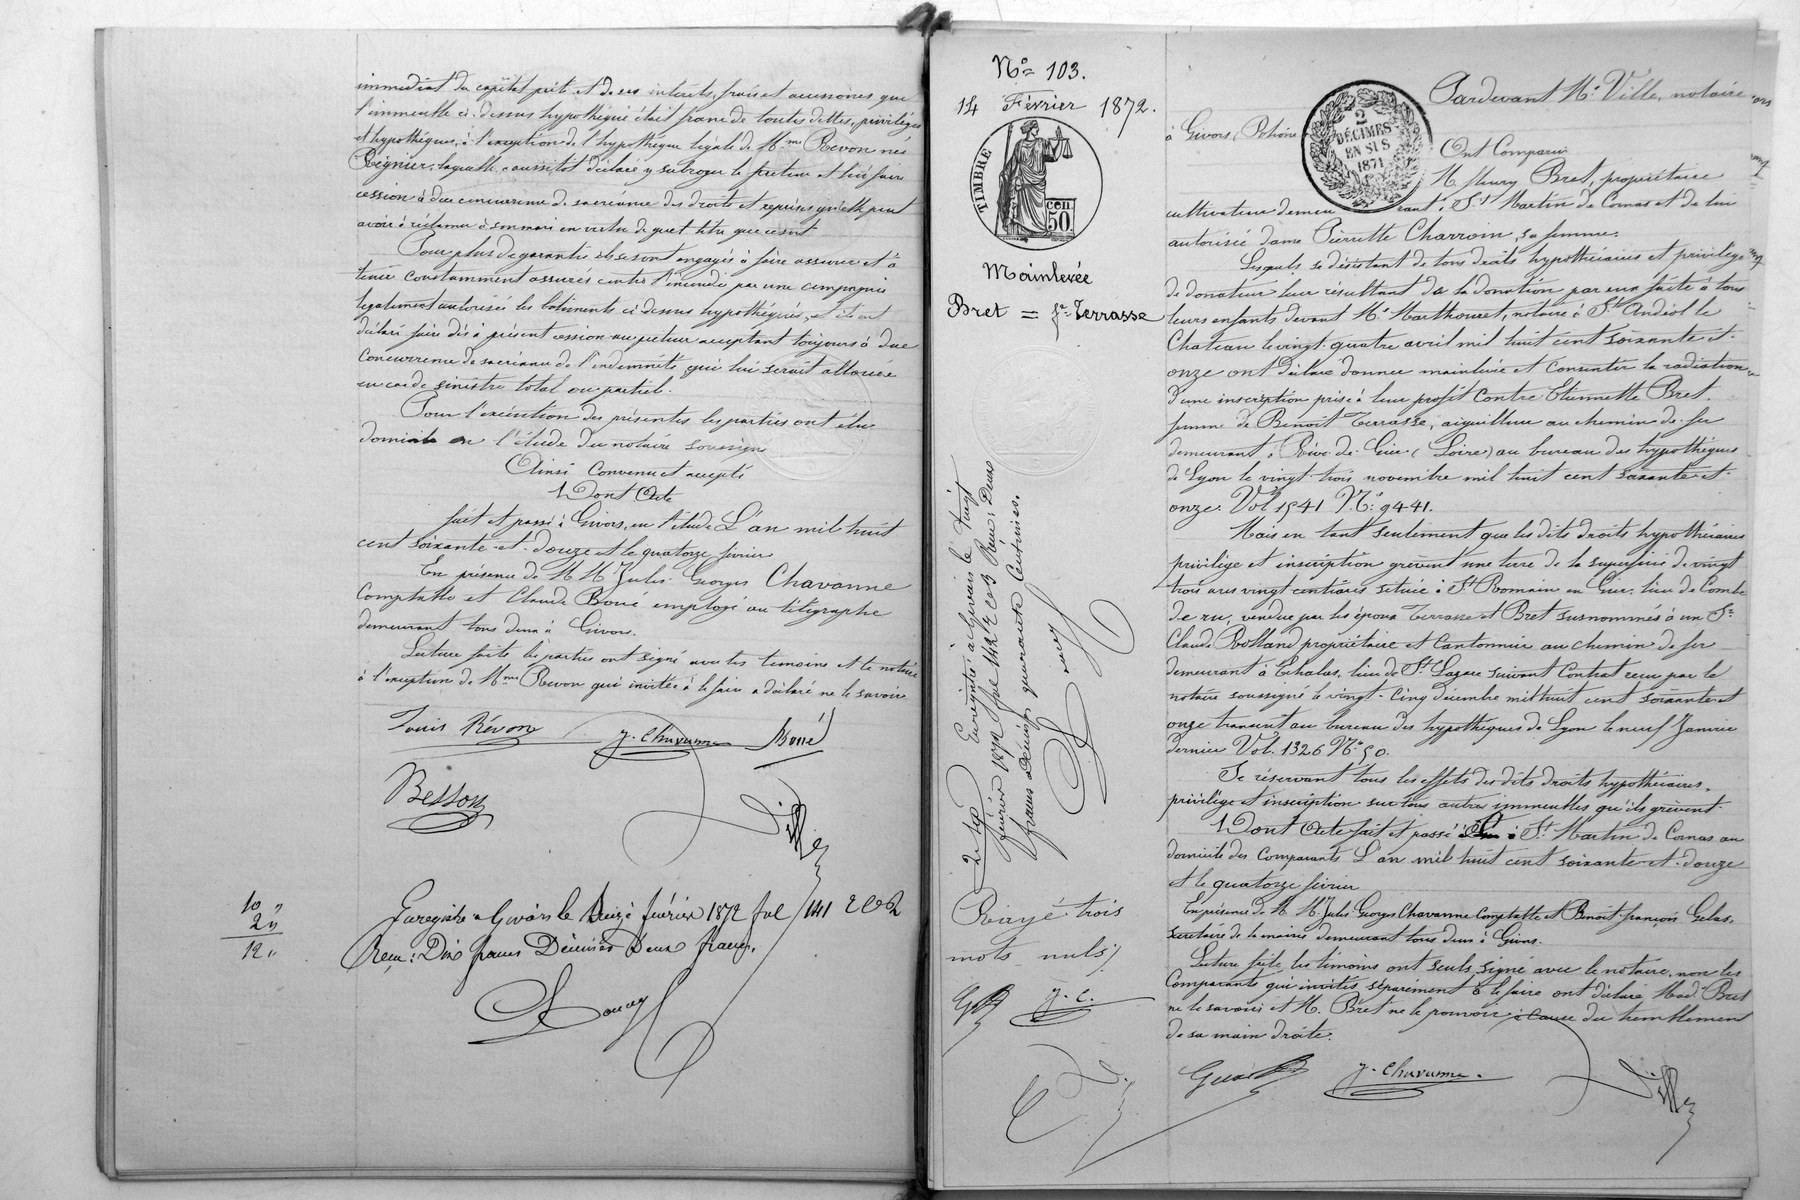 immédiat du capital prêté et de ses intérêts, frais et accessoires que
l'immeuble ci-dessus hypothéqué était franc de toutes dettes, privilèges
et hypothèques, à l'exception de l'hypothèque légale de Mme Revon née
Régnier, laquelle a aussitôt déclaré y subroger le prêteur et lui faire
cession à due concurrence de sa créance des droits et reprises qu'elle peut
avoir à réclamer à son mari en vertu de quel titre que ce soit
Pour plus de garantie ils se sont engagés à faire assurer et à
tenir constamment assurés contre l'incendie par une compagnie
légalement autorisée les bâtiments ci-dessus hypothéqués, et ils ont
déclaré faire dès à présent cession au prêteur acceptant toujours à due
concurrence de sa créance de l'indemnité qui lui serait allouée
en cas de sinistre total ou partiel.
Pour l'exécution des présentes les parties ont élu
domicile en l'étude du notaire soussigné
Ainsi Convenu et accepté
Dont Acte
fait et passé à Givors, en l'étude L'an mil huit
cent soixante-et-douze et le quatorze février
En présence de M M Jules Georges Chavanne
Comptable et Claude Boué employé au télégraphe
demeurant tous deux à Givors.
Lecture faite les parties ont signé avec les témoins et le notaire
à l'exception de Mme Revon qui invitée à le faire a déclaré ne le savoir
Louis Révon J. Chavanne Boué
Besson Ville
10 "
2 "
12 "
Enregistré à Givors le Seize février 1872 fol 141 2 C 2
Reçu : Dix francs Décimes Deux francs.
Nº 103.
14 Février 1872.
TIMBRE
50 cen
Mainlevée
Bret = fe Terrasse
Enregistré à Givors le Vingt
février 1872 fol 142 R C 3 Reçu : Deux
francs Décimes quarante Centimes.
Rayé trois
mots nuls
J. C.
2 DÉCIMES EN SUS 1871
Pardevant Me Ville, notaire
à Givors, Rhône
Ont Comparu
M fleury Bret, propriétaire
cultivateur demeurant à St Martin de Cornas et de lui
autorisée dame Pierrette Charroin, sa femme.
Lesquels se désistant de tous droits hypothécaires et privilège
de donateur leur résultant de la donation par eux faite à tous
leurs enfants devant Me Marthouret, notaire à St Andéol le
Chateau le vingt-quatre avril mil huit cent soixante et
onze ont déclaré donner mainlevée et consentir la radiation
d'une inscription prise à leur profit contre Etiennette Bret
femme de Benoit Terrasse, aiguilleur au chemin de fer
demeurant à Rive de Gier (Loire) au bureau des hypothèques
de Lyon le vingt-trois novembre mil huit cent soixante et
onze. Vol 1541 Nº 9441.
Mais en tant seulement que les dits droits hypothécaires
privilège et inscription grèvent une terre de la superficie de vingt
trois ares vingt centiares située à St Romain en Gier, lieu de Combe
de ru, vendue par les époux Terrasse et Bret susnommés à un Sr
Claude Rolland propriétaire et Cantonnier au chemin de fer
demeurant à Echalas, lieu de St Lazare suivant Contrat reçu par le
notaire soussigné le vingt-Cinq décembre mil huit cent soixante et
onze transcrit au bureau des hypothèques de Lyon le neuf Janvier
dernier Vol. 1326 Nº 50.
Se réservant tous les effets des dits droits hypothécaires,
privilège et inscription sur tous autres immeubles qu'ils grèvent
Dont Acte fait et passé à St Martin de Cornas au
domicile des Comparants L'an mil huit cent soixante-et-douze
et le quatorze février
En présence de M M Jules Georges Chavanne Comptable et Benoit françois Gelas,
secrétaire de la mairie demeurant tous deux à Givors.
Lecture faite, les témoins ont seuls signé avec le notaire, non les
Comparants qui invités séparément à le faire ont déclaré Mad. Bret
ne le savoir et M. Bret ne le pouvoir à cause du tremblement
de sa main droite.
J. Chavanne. Ville